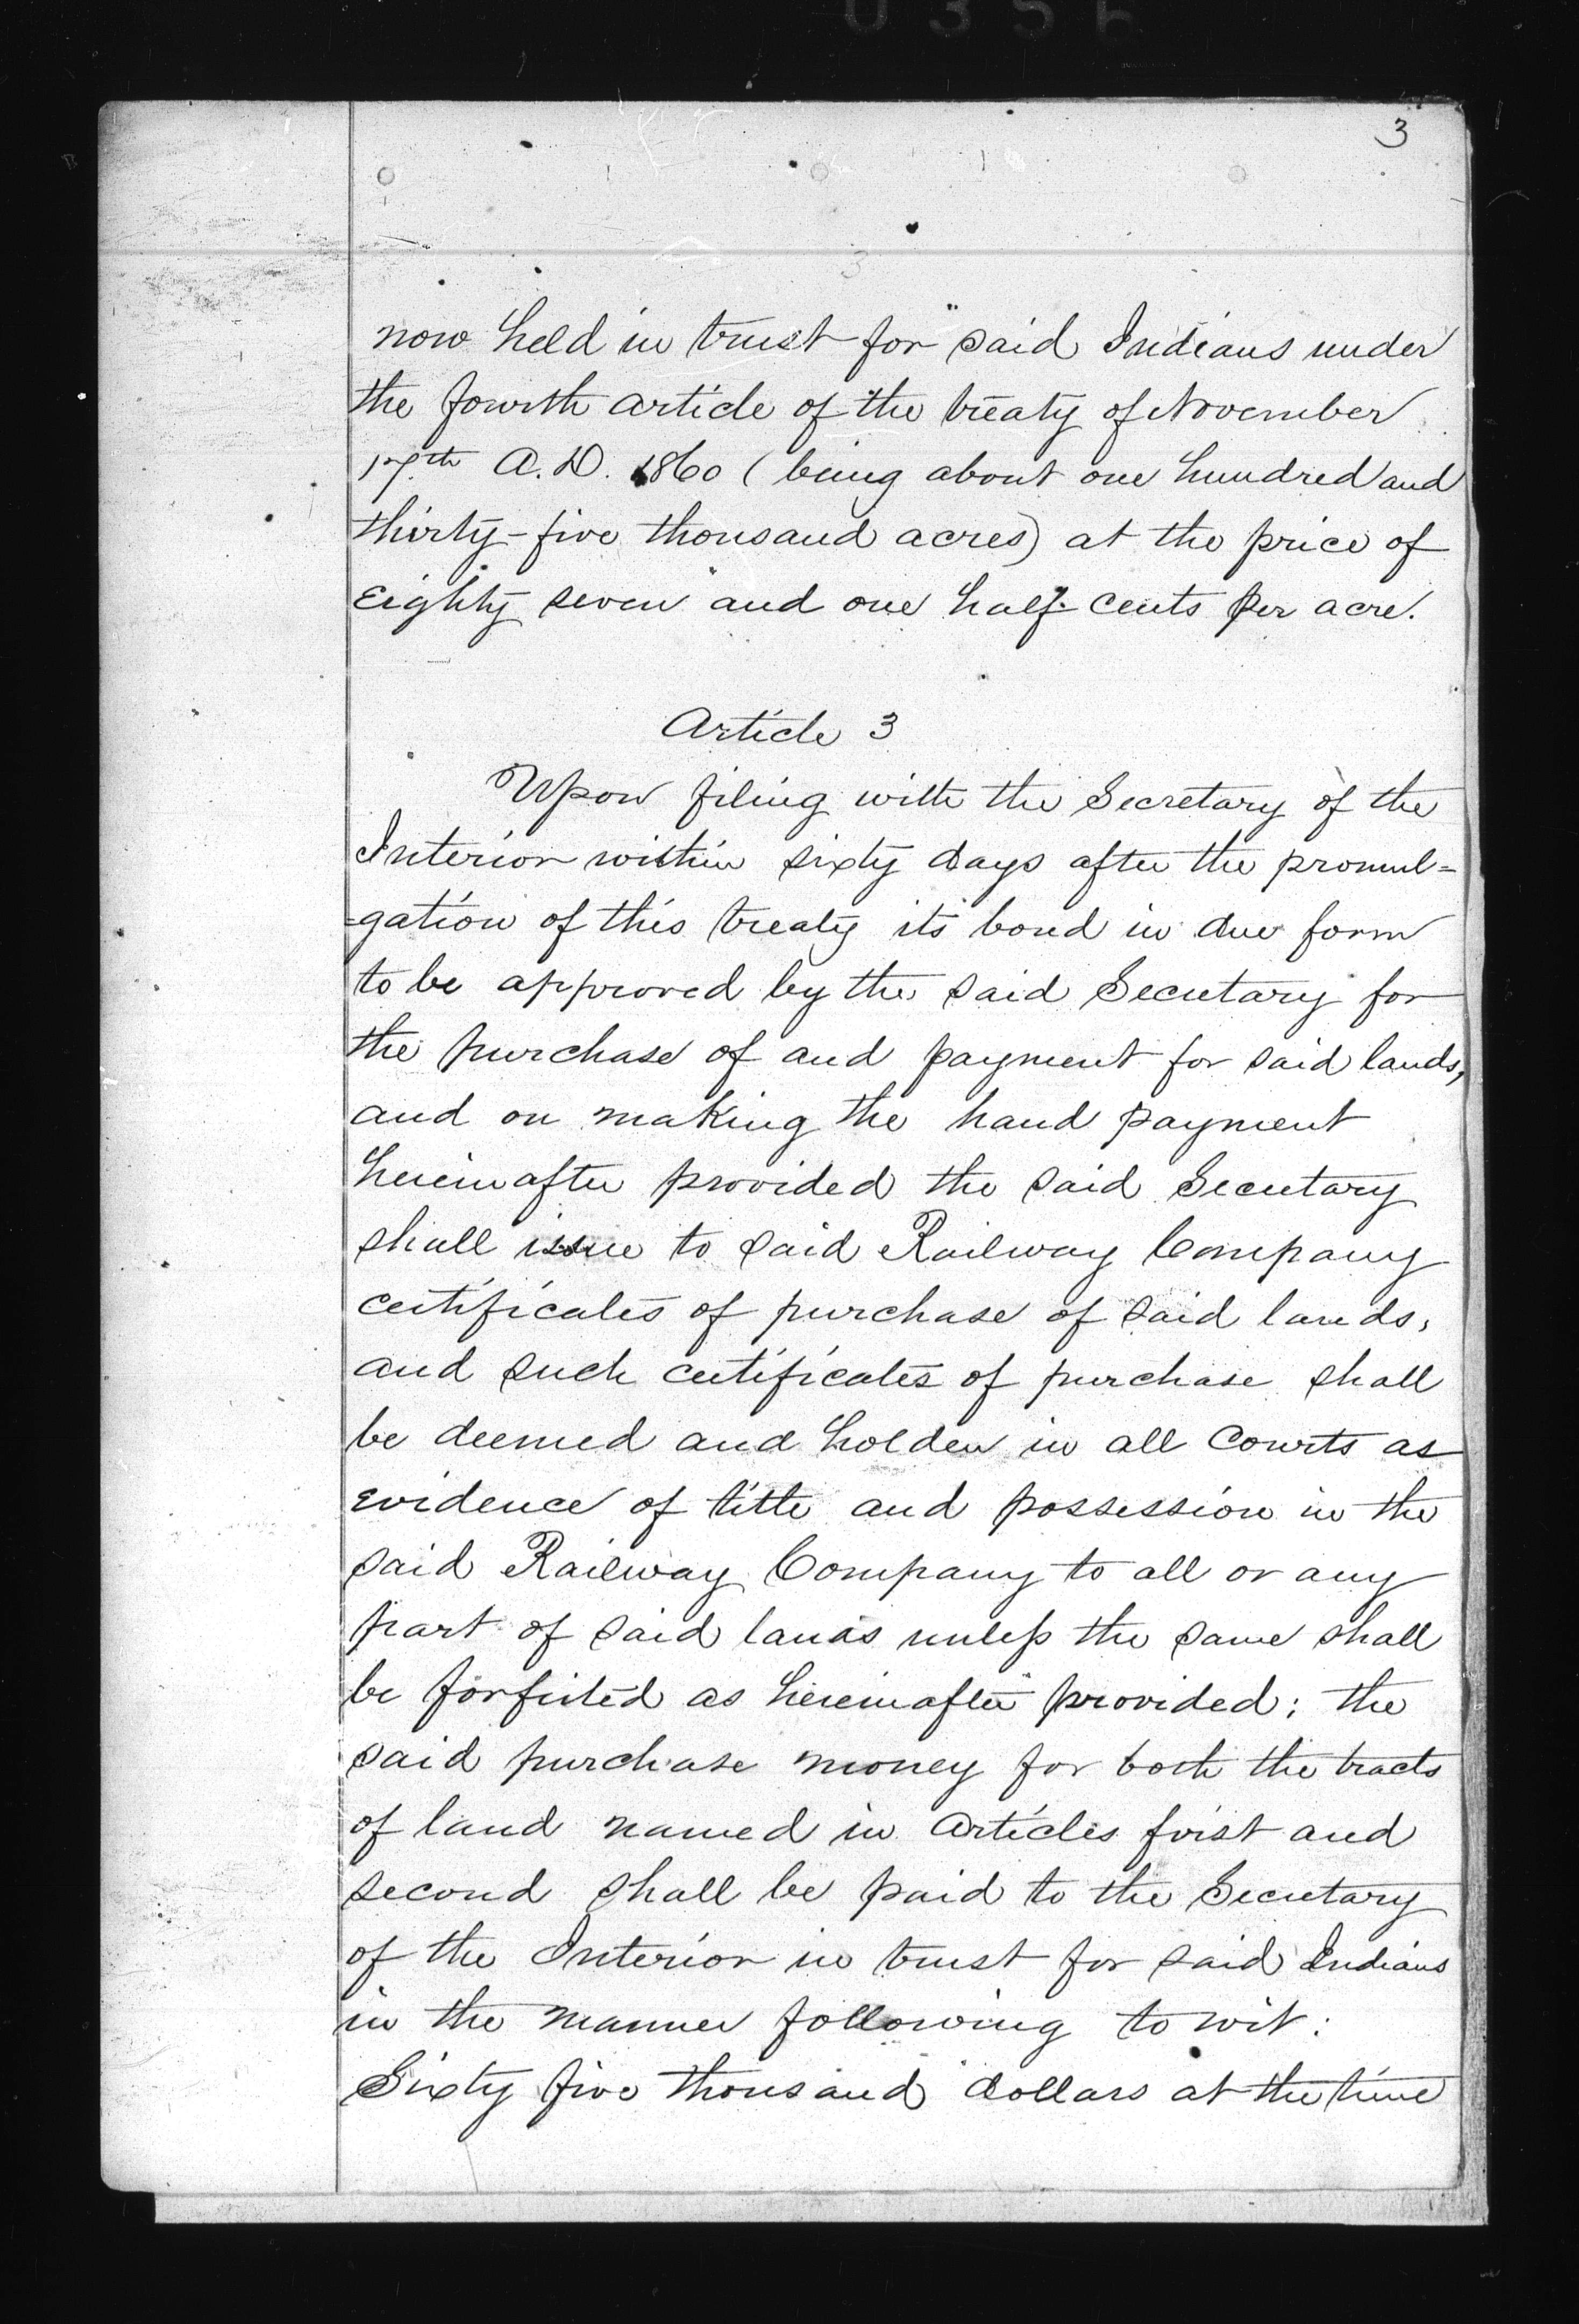 3
now held in trust for said Indians under
the fourth article of the treaty of November
17th A.D. 1860 (being about one hundred and
thirty-five thousand acres) at the price of
Eighty seven and one half cents per acre.
Article 3
Upon filing with the Secretary of the
Interior within sixty days after the promul=
=gation of this treaty its bond in due form
to be approved by the said Secretary for
the purchase of and payment for said lands,
and on making the hand payment
hereinafter provided the said Secretary
shall issue to said Railway Company
certificates of purchase of said lands,
and such certificates of purchase shall
be deemed and holden in all Courts as
evidence of title and possession in the
said Railway Company to all or any
part of said lands unless the same shall
be forfeited as hereinafter provided; the
said purchase money for both the tracts
of land named in Articles first and
second shall be paid to the Secretary
of the Interior in trust for said Indians
in the manner following to wit:
Sixty five thousand dollars at the time